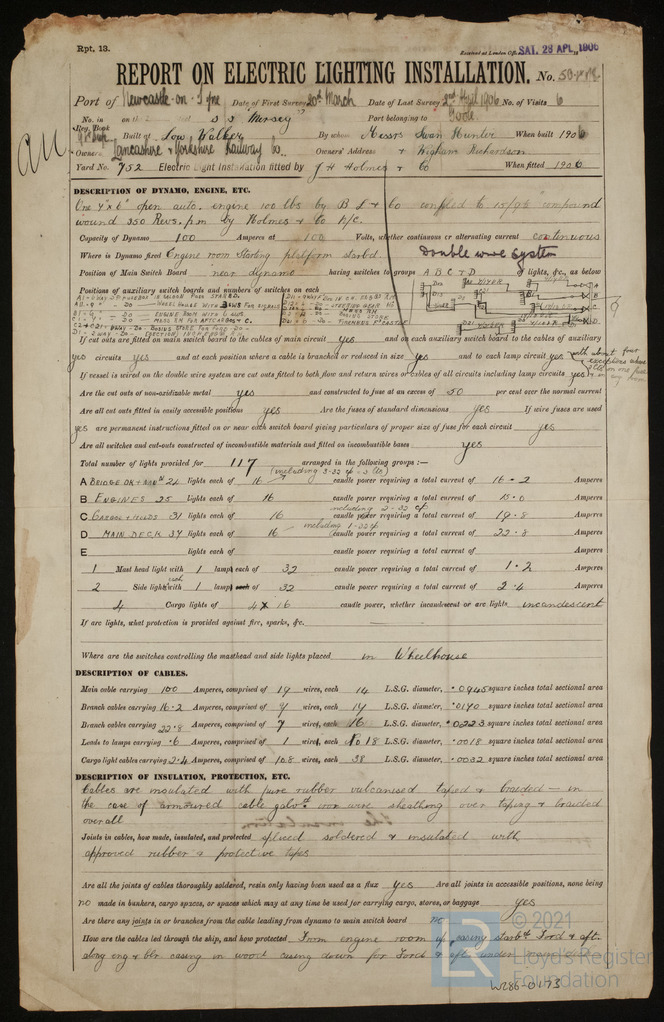 Rpt. 13.
Received at London Office SAT. 28 APL. 1906
REPORT ON ELECTRIC LIGHTING INSTALLATION. No.
Port of Newcastle-on-Tyne Date of First Survey 20th March Date of Last Survey 2nd April 1906 No. of Visits 6
No. in Reg. Book on the S S "Mersey" Port belonging to Goole
Built at Low Walker By whom Messrs Swan Hunter & Wigham Richardson When built 1906
Owners Lancashire & Yorkshire Railway Co. Owners' Address
Yard No. 752 Electric Light Installation fitted by J H Holmes & Co When fitted 1906
DESCRIPTION OF DYNAMO, ENGINE, ETC.
One open auto. engine 100 lbs by & Co coupled to compound
wound 350 Revs. p.m by Holmes & Co
Capacity of Dynamo 100 Amperes at 100 Volts, whether continuous or alternating current continuous
Where is Dynamo fixed Engine room Starting platform starbd. Double wire system
Position of Main Switch Board near dynamo having switches to groups A B C & D of lights, &c., as below
Positions of auxiliary switch boards and numbers of switches on each
If cut outs are fitted on main switch board to the cables of main circuit yes and on each auxiliary switch board to the cables of auxiliary
circuits yes and at each position where a cable is branched or reduced in size yes and to each lamp circuit yes with about four exceptions where
If vessel is wired on the double wire system are cut outs fitted to both flow and return wires or cables of all circuits including lamp circuits yes
Are the cut outs of non-oxidizable metal yes and constructed to fuse at an excess of 50 per cent over the normal current
Are all cut outs fitted in easily accessible positions yes Are the fuses of standard dimensions yes If wire fuses are used
yes are permanent instructions fitted on or near each switch board giving particulars of proper size of fuse for each circuit yes
Are all switches and cut-outs constructed of incombustible materials and fitted on incombustible bases yes
Total number of lights provided for 117 arranged in the following groups :—
A BRIDGE DK + 24 lights each of 16 (including 3-32 cp) candle power requiring a total current of 16.2 Amperes
B ENGINES 25 lights each of 16 candle power requiring a total current of 15.0 Amperes
C CARGO + HOLDS 31 lights each of 16 including 2-32 cp candle power requiring a total current of 19.8 Amperes
D MAIN DECK 37 lights each of 16 including 1-32 cp candle power requiring a total current of 22.8 Amperes
E lights each of candle power requiring a total current of Amperes
1 Mast head light with 1 lamp each of 32 candle power requiring a total current of 1.2 Amperes
2 Side light each with 1 lamp each of 32 candle power requiring a total current of 2.4 Amperes
4 Cargo lights of 4 x 16 candle power, whether incandescent or arc lights incandescent
If arc lights, what protection is provided against fire, sparks, &c.
Where are the switches controlling the masthead and side lights placed in Wheelhouse
DESCRIPTION OF CABLES.
Main cable carrying 100 Amperes, comprised of 19 wires, each 14 L.S.G. diameter, .0945 square inches total sectional area
Branch cables carrying 16.2 Amperes, comprised of 7 wires, each 17 L.S.G. diameter, .0170 square inches total sectional area
Branch cables carrying 22.8 Amperes, comprised of 7 wires, each 16 L.S.G. diameter, .0223 square inches total sectional area
Leads to lamps carrying .6 Amperes, comprised of 1 wires, each No 18 L.S.G. diameter, .0018 square inches total sectional area
Cargo light cables carrying 2.4 Amperes, comprised of 108 wires, each 38 L.S.G. diameter, .0032 square inches total sectional area
DESCRIPTION OF INSULATION, PROTECTION, ETC.
Cables are insulated with pure rubber vulcanised taped & braided — in
the case of armoured cable galvd iron wire sheathing over taping & braided
overall
Joints in cables, how made, insulated, and protected spliced soldered & insulated with
approved rubber & protective tapes
Are all the joints of cables thoroughly soldered, resin only having been used as a flux yes Are all joints in accessible positions, none being
no made in bunkers, cargo spaces, or spaces which may at any time be used for carrying cargo, stores, or baggage yes
Are there any joints in or branches from the cable leading from dynamo to main switch board no
How are the cables led through the ship, and how protected From engine room up casing starbd Ford & aft
along eng & blr casing in wood casing down for Ford & aft under
© 2021
Lloyd's Register
Foundation
W286-0173